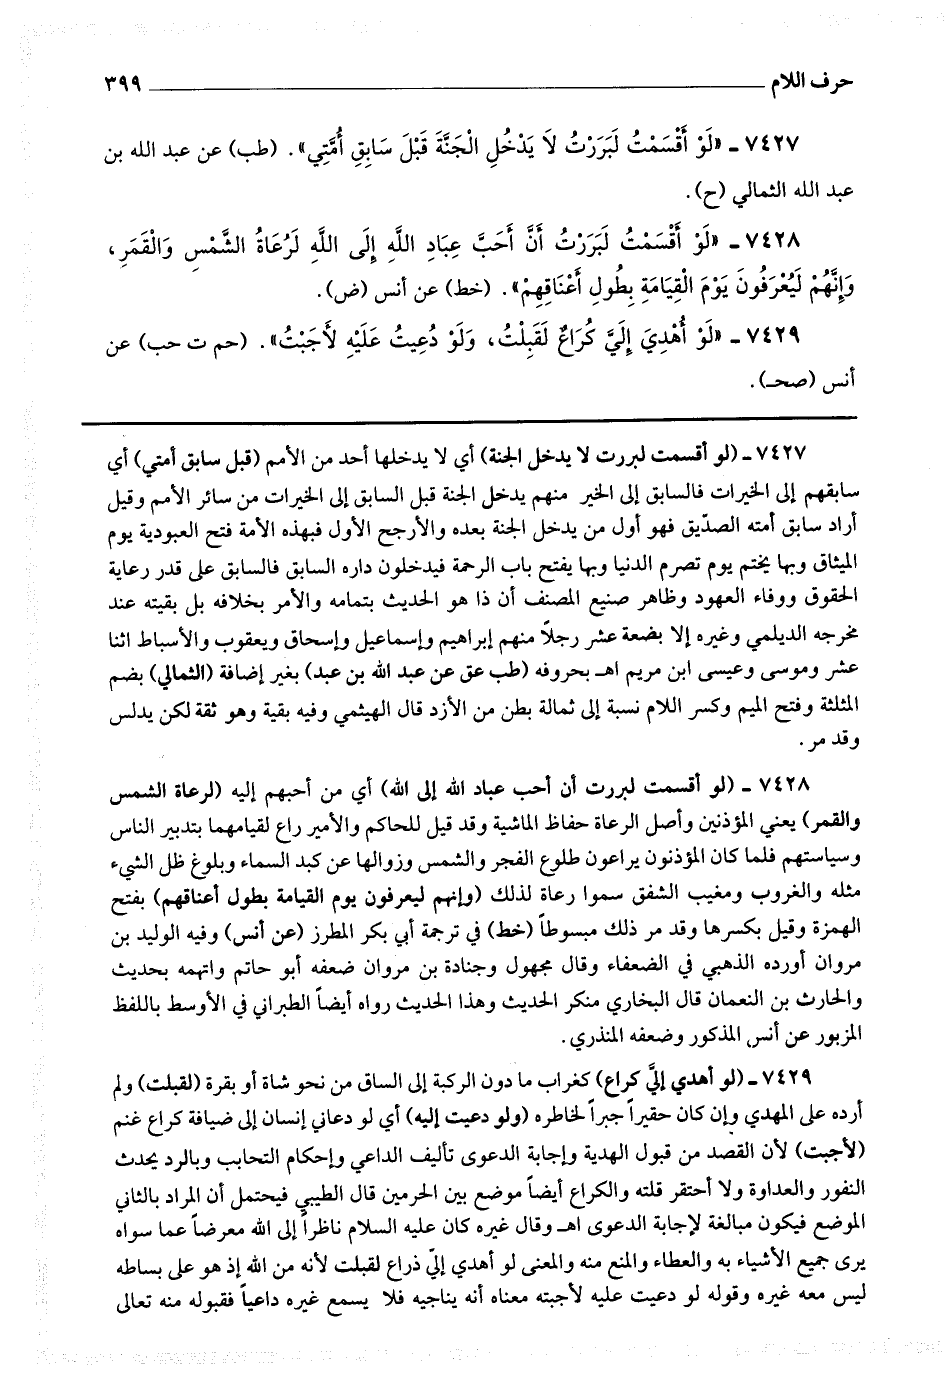 حرف اللام ٣٩٩
٧٤٢٧ - «لَوْ أَقْسَمْتُ لَبَرَرْتُ لَا يَدْخُلِ الْجَنَّةَ قَبْلَ سَابِقِ أُمَّتِي». (طب) عن عبد الله بن
عبد الله الثمالي (ح).
٧٤٢٨ - «لَوْ أَقْسَمْتُ لَبَرَرْتُ أَنَّ أَحَبَّ عِبَادِ اللَّهِ إِلَى اللَّهِ لَرُعَاةُ الشَّمْسِ وَالْقَمَرِ،
وَإِنَّهُمْ لَيُعْرَفُونَ يَوْمَ الْقِيَامَةِ بِطُولِ أَعْنَاقِهِمْ». (خط) عن أنس (ض).
٧٤٢٩ - «لَوْ أُهْدِيَ إِلَيَّ كُرَاعٌ لَقَبِلْتُ، وَلَوْ دُعِيتُ عَلَيْهِ لَأَجَبْتُ». (حم ت حب) عن
أنس (صحـ).
٧٤٢٧ - (لو أقسمت لبررت لا يدخل الجنة) أي لا يدخلها أحد من الأمم (قبل سابق أمتي) أي
سابقهم إلى الخيرات فالسابق إلى الخير منهم يدخل الجنة قبل السابق إلى الخيرات من سائر الأمم وقيل
أراد سابق أمته الصدّيق فهو أول من يدخل الجنة بعده والأرجح الأول فبهذه الأمة فتح العبودية يوم
الميثاق وبها يختم يوم تصرم الدنيا وبها يفتح باب الرحمة فيدخلون داره السابق فالسابق على قدر رعاية
الحقوق ووفاء العهود وظاهر صنيع المصنف أن ذا هو الحديث بتمامه والأمر بخلافه بل بقيته عند
مخرجه الديلمي وغيره إلا بضعة عشر رجلاً منهم إبراهيم وإسماعيل وإسحاق ويعقوب والأسباط اثنا
عشر وموسى وعيسى ابن مريم اهـ بحروفه (طب عق عن عبد الله بن عبد) بغير إضافة (الثمالي) بضم
المثلثة وفتح الميم وكسر اللام نسبة إلى ثمالة بطن من الأزد قال الهيثمي وفيه بقية وهو ثقة لكن يدلس
وقد مر.
٧٤٢٨ - (لو أقسمت لبررت أن أحب عباد الله إلى الله) أي من أحبهم إليه (لرعاة الشمس
والقمر) يعني المؤذنين وأصل الرعاة حفاظ الماشية وقد قيل للحاكم والأمير راع لقيامهما بتدبير الناس
وسياستهم فلما كان المؤذنون يراعون طلوع الفجر والشمس وزوالها عن كبد السماء وبلوغ ظل الشيء
مثله والغروب ومغيب الشفق سموا رعاة لذلك (وإنهم ليعرفون يوم القيامة بطول أعناقهم) بفتح
الهمزة وقيل بكسرها وقد مر ذلك مبسوطاً (خط) في ترجمة أبي بكر المطرز (عن أنس) وفيه الوليد بن
مروان أورده الذهبي في الضعفاء وقال مجهول وجنادة بن مروان ضعفه أبو حاتم واتهمه بحديث
والحارث بن النعمان قال البخاري منكر الحديث وهذا الحديث رواه أيضاً الطبراني في الأوسط باللفظ
المزبور عن أنس المذكور وضعفه المنذري.
٧٤٢٩ - (لو أهدي إليَّ كراع) كغراب ما دون الركبة إلى الساق من نحو شاة أو بقرة (لقبلت) ولم
أرده على المهدي وإن كان حقيراً جبراً لخاطره (ولو دعيت إليه) أي لو دعاني إنسان إلى ضيافة كراع غنم
(لأجبت) لأن القصد من قبول الهدية وإجابة الدعوى تأليف الداعي وإحكام التحابب وبالرد يحدث
النفور والعداوة ولا أحتقر قلته والكراع أيضاً موضع بين الحرمين قال الطيبي فيحتمل أن المراد بالثاني
الموضع فيكون مبالغة لإجابة الدعوى اهـ وقال غيره كان عليه السلام ناظراً إلى الله معرضاً عما سواه
يرى جميع الأشياء به والعطاء والمنع منه والمعنى لو أهدي إليّ ذراع لقبلت لأنه من الله إذ هو على بساطه
ليس معه غيره وقوله لو دعيت عليه لأجبته معناه أنه يناجيه فلا يسمع غيره داعياً فقبوله منه تعالى